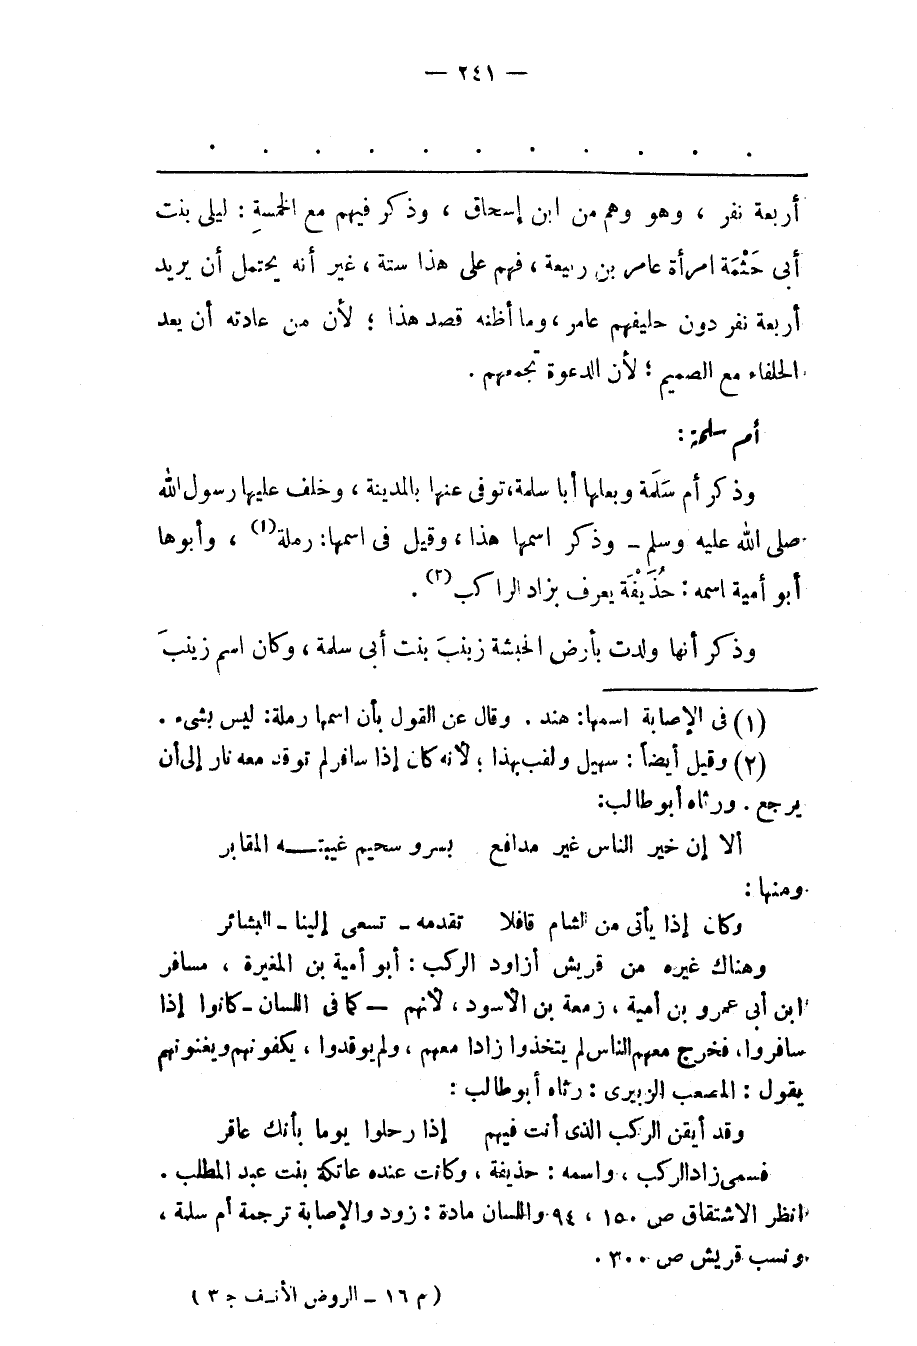 — ٢٤١ —
أربعة نفر ، وهو وهم من ابن إسحاق ، وذكر فيهم مع الخمسة : ليلى بنت
أبى حَثْمَة امرأة عامر بن ربيعة ، فهم على هذا ستة ، غير أنه يحتمل أن يريد
أربعة نفر دون حليفهم عامر ، وما أظنه قصد هذا ؛ لأن من عادته أن يعد
الحلفاء مع الصميم ؛ لأن الدعوة تجمعهم .
أم سلمة :
وذكر أم سَلَمة وبعلها أبا سلمة، توفى عنها بالمدينة ، وخلف عليها رسول الله
صلى الله عليه وسلم - وذكر اسمها هذا ، وقيل فى اسمها : رملة(١) ، وأبوها
أبو أمية اسمه : حُذَيْفَة يعرف بزاد الراكب(٢) .
وذكر أنها ولدت بأرض الحبشة زينبَ بنت أبى سلمة ، وكان اسم زينبَ
(١) فى الإصابة اسمها : هند . وقال عن القول بأن اسمها رملة : ليس بشىء .
(٢) وقيل أيضاً : سهيل ولقب بهذا ؛ لأنه كان إذا سافر لم توقد معه نار إلى أن
يرجع . ورثاه أبو طالب :
ألا إن خير الناس غير مدافع بسرو سحيم غيبتـــه المقابر
ومنها :
وكان إذا يأتى من الشام قافلا تقدمه - تسعى إلينا - البشائر
وهناك غيره من قريش أزاود الركب : أبو أمية بن المغيرة ، مسافر
ابن أبى عمرو بن أمية ، زمعة بن الأسود ، لأنهم — كما فى اللسان - كانوا إذا
سافروا، فخرج معهم الناس لم يتخذوا زادا معهم ، ولم يوقدوا ، يكفونهم ويغنونهم
يقول : المصعب الزبيرى : رثاه أبو طالب :
وقد أيقن الركب الذى أنت فيهم إذا رحلوا يوما بأنك عاقر
فسمى زاد الركب ، واسمه : حذيفة ، وكانت عنده عاتكة بنت عبد المطلب .
انظر الاشتقاق ص ١٥٠ ، ٩٤ واللسان مادة : زود والإصابة ترجمة أم سلمة ،
ونسب قريش ص ٣٠٠ .
( م ١٦ - الروض الأنف ج ٣ )